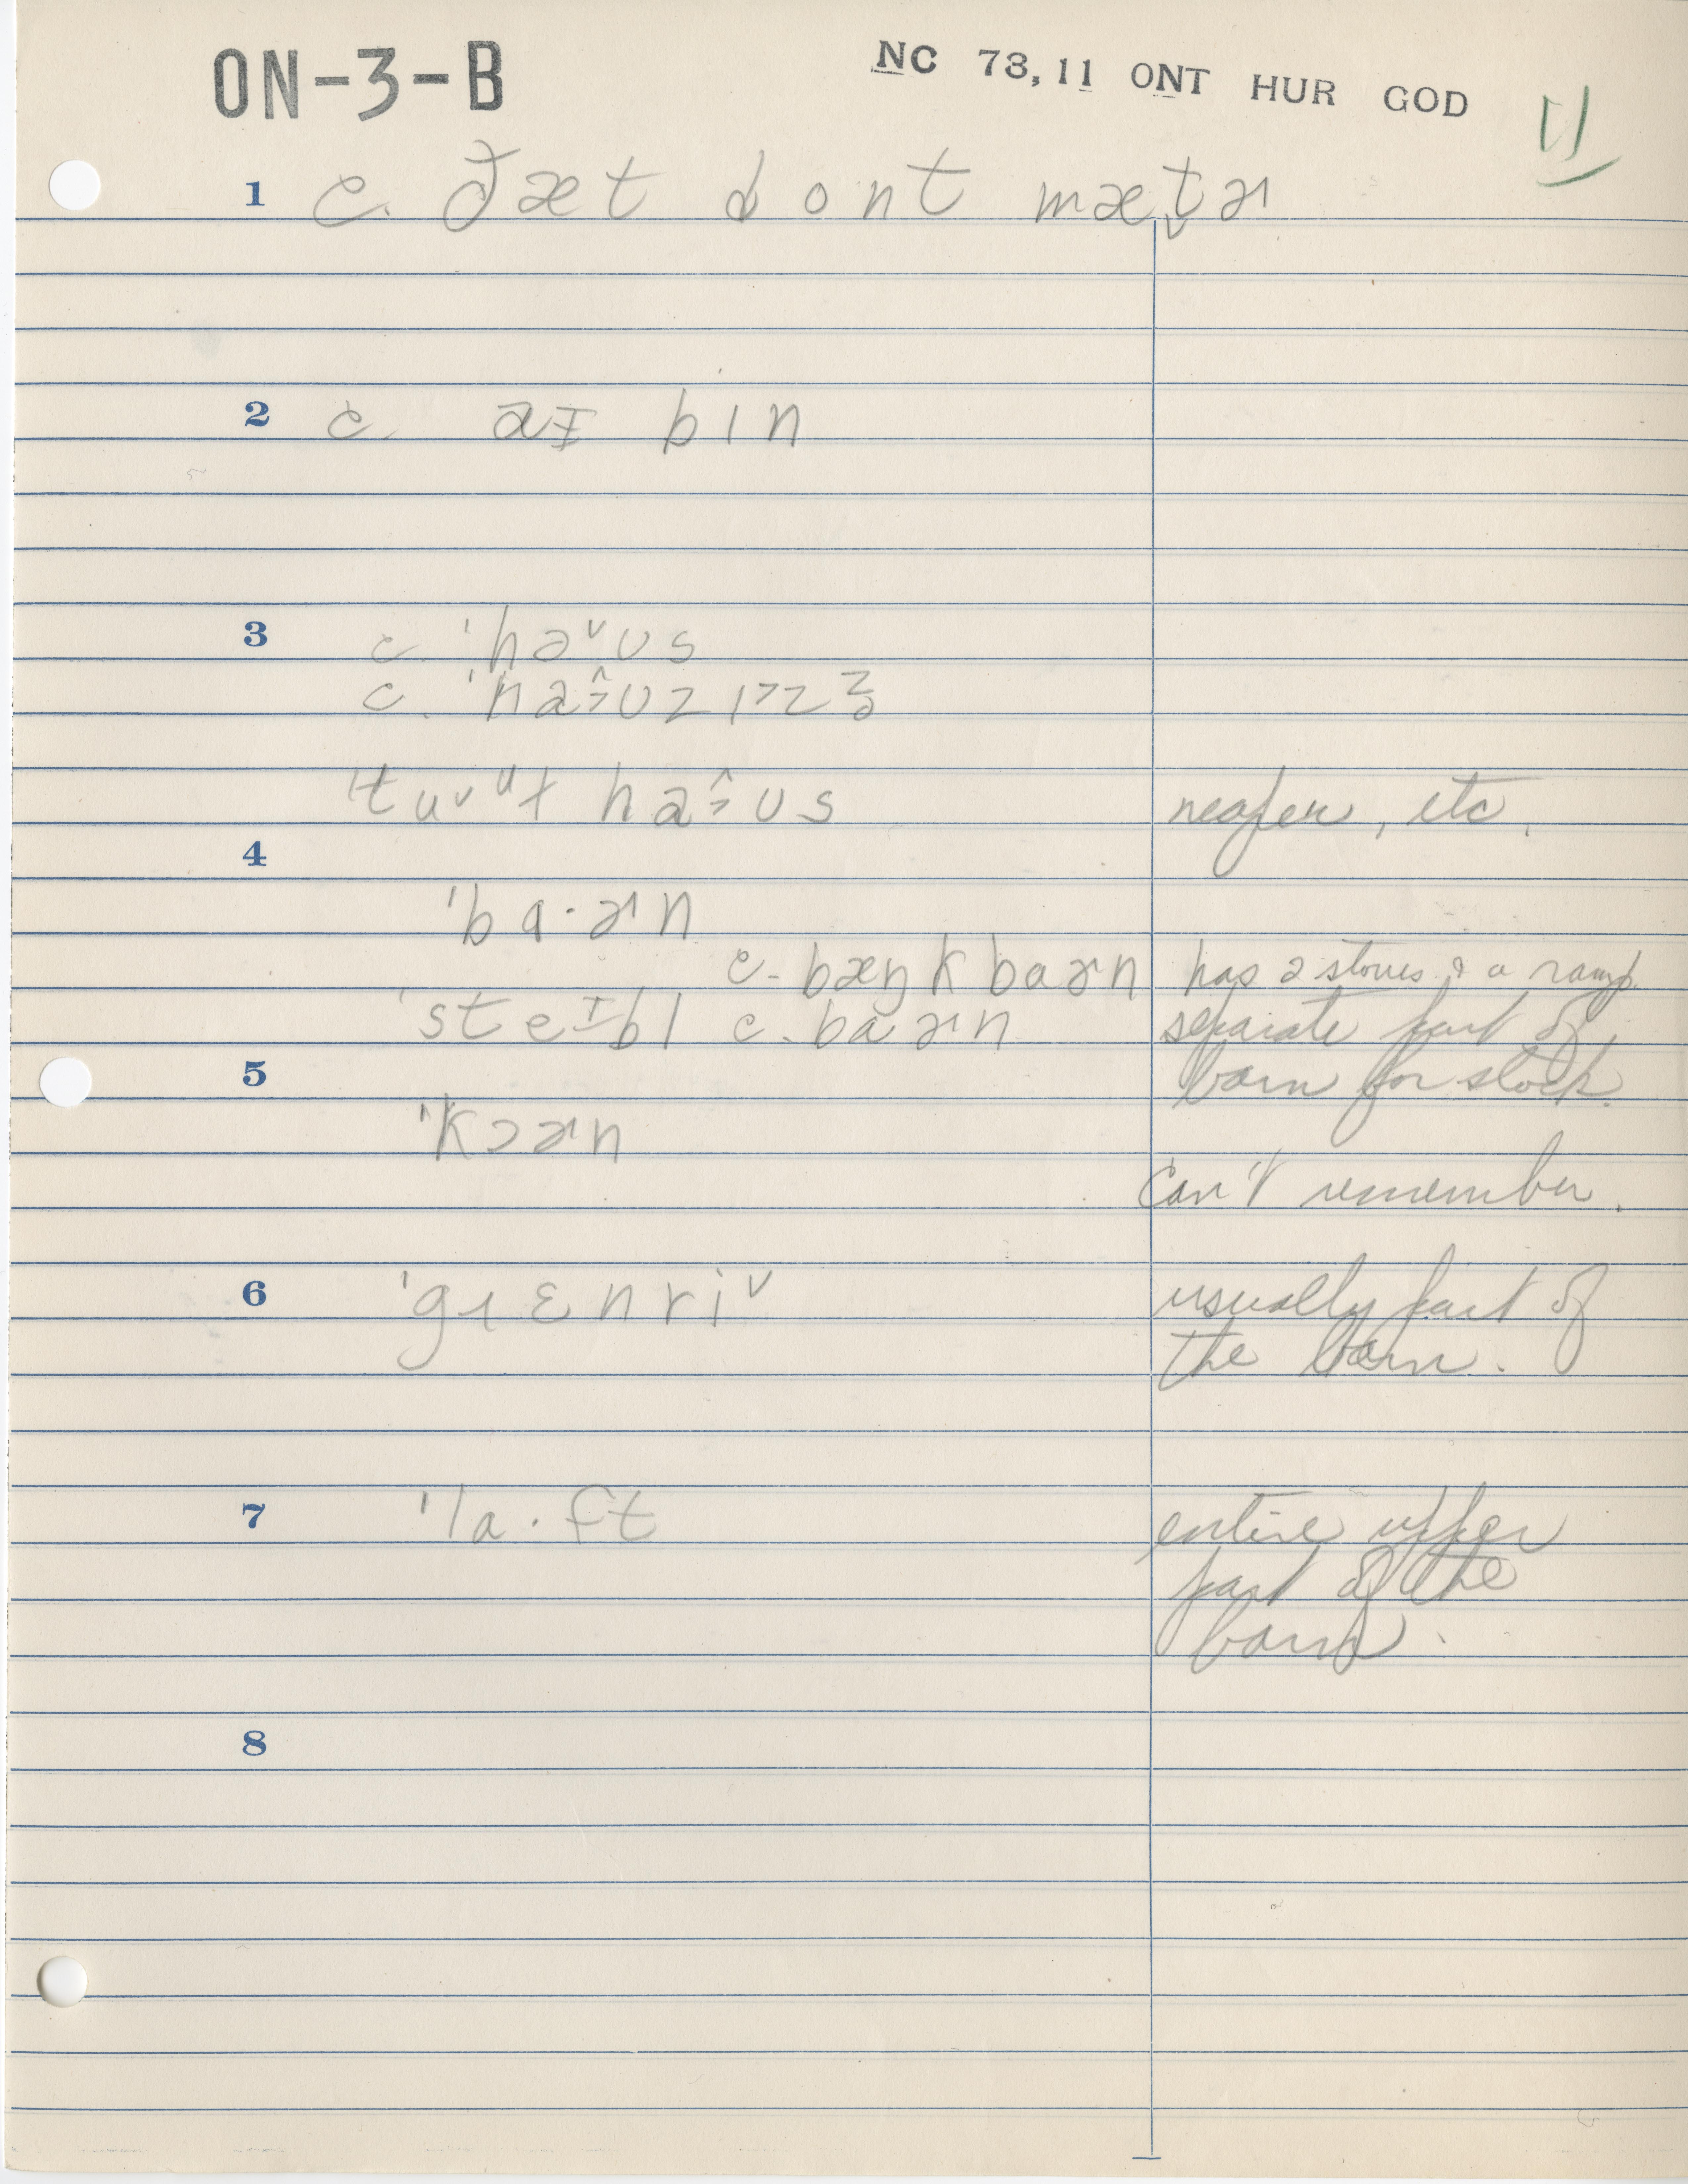 ON-3-B NC 73,11 ONT HUR GOD 11
1 c. ðæt dont mæt̬ɚ
2 c. aɪ bɪn
3 c. ˈhəᵛʊs
c. ˈha᷈ʊzɪzz̥
ˈtuᵛᵘl haˆ˃ʊs reaper, etc.
4
ˈbɑ·ɚn
c. bæŋk bɑɚn has 2 stories & a ramp
ˈsteᶦbl c. bɑɚn separate part of
5 barn for stock.
ˈkɔɚn
can't remember.
6 ˈgɹɛnriᵛ usually part of
the barn.
7 ˈlɑ·ft entire upper
part of the
barn.
8